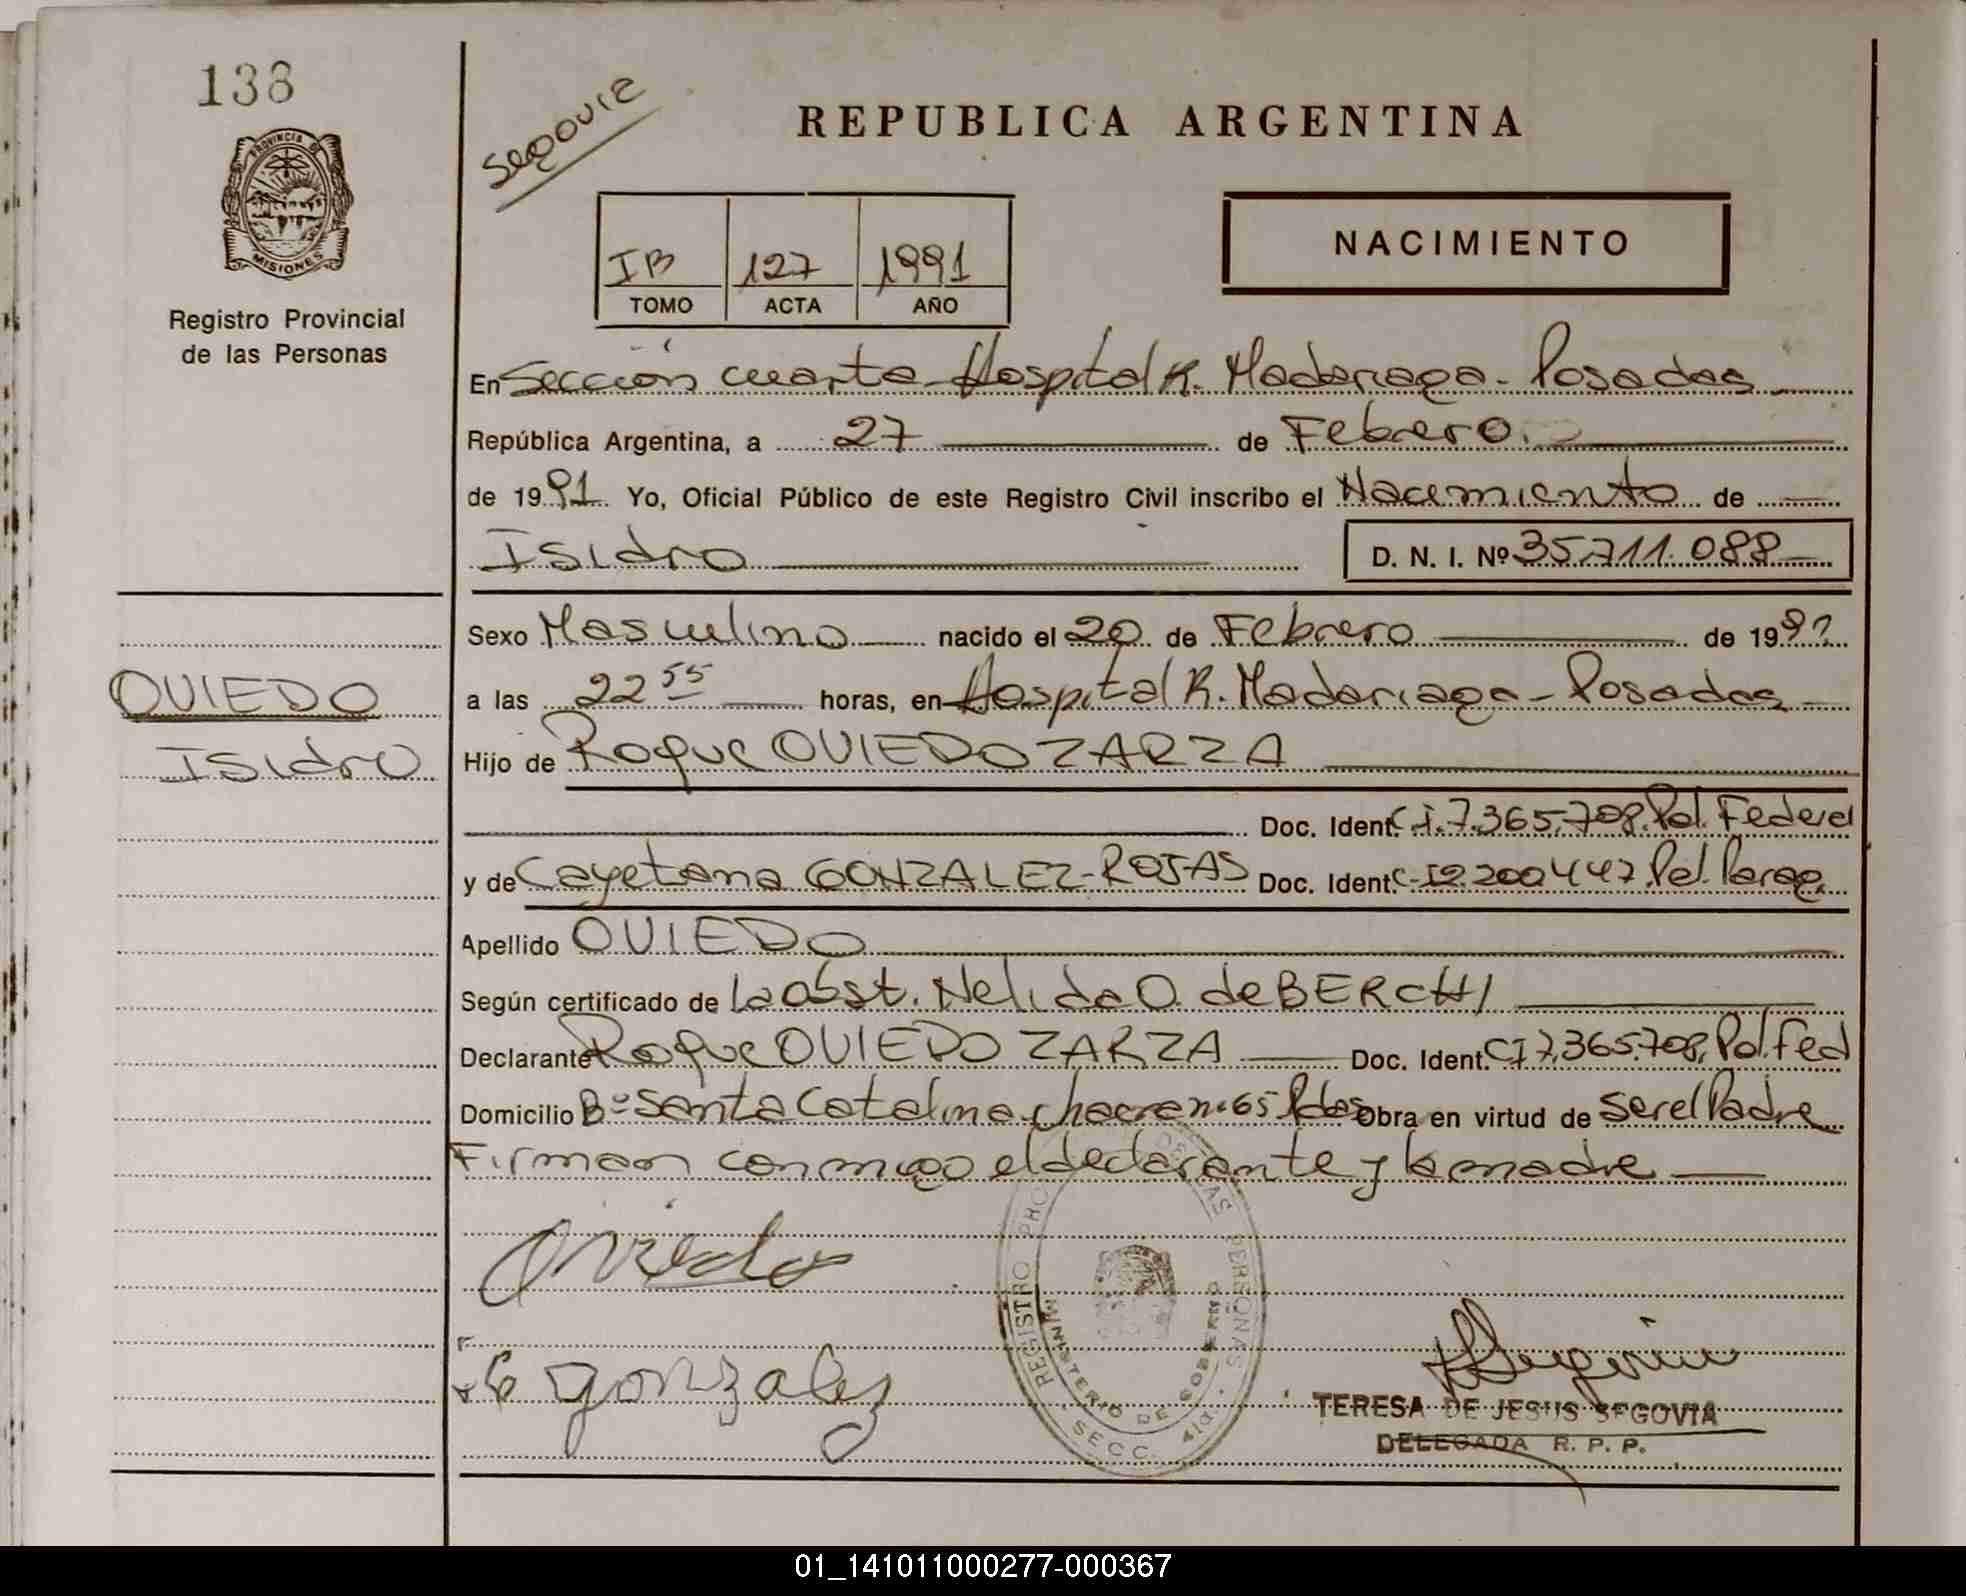 138
PROVINCIA DE
MISIONES
Registro Provincial
de las Personas
Segovia
REPUBLICA ARGENTINA
IB 127 1991
TOMO ACTA AÑO
NACIMIENTO
En Sección cuarta Hospital R. Madariaga - Posadas
República Argentina, a 27 de Febrero
de 1991 Yo, Oficial Público de este Registro Civil inscribo el Nacimiento de
Isidro D. N. I. Nº 35.711.088
Sexo Masculino nacido el 20 de Febrero de 199
a las 22 55 horas, en Hospital R. Madariaga - Posadas
OVIEDO
Isidro
Hijo de Roque OVIEDO ZARZA
Doc. Ident. C.I. 7.365.708. Pol. Federal
y de Cayetana GONZALEZ-ROJAS Doc. Ident. C-I 2.200447. Pol. Parag.
Apellido OVIEDO
Según certificado de la obst. Nelida O. de BERCHI
Declarante Roque OVIEDO ZARZA Doc. Ident. CI 7.365.708, Pol. Fed
Domicilio Bº Santa Catalina chacra nº 65 Pdas Obra en virtud de ser el Padre
Firman conmigo el declarante y la madre
Oviedo
gonzalez
REGISTRO PROV DE LAS PERSONAS
MINISTERIO DE GOBIERNO
SECC. 4ta.
TERESA DE JESUS SEGOVIA
DELEGADA R. P. P.
01_141011000277-000367